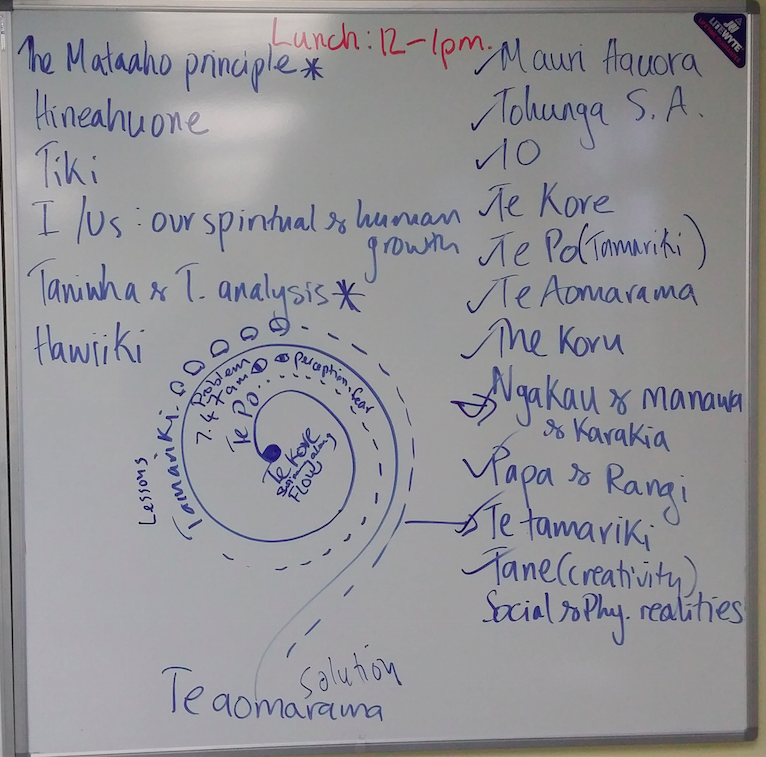 Lunch: 12-1pm.
LITEWYTE
The Mataaho principle*
Hineahuone
Tiki
I /Us: our spiritual & human
growth
Taniwha & T. analysis*
Hawiiki
Mauri Hauora
Tohunga S. A.
IO
Te Kore
Te Po (Tamariki)
Te Aomarama
The Koru
Ngakau & manawa
& Karakia
Papa & Rangi
Te tamariki
Tane (creativity)
Social & Phy. realities
Lessons
Tamariki.
Problem
perception, fear
Te Po..
Te Kore
Flow
solution
Te aomarama